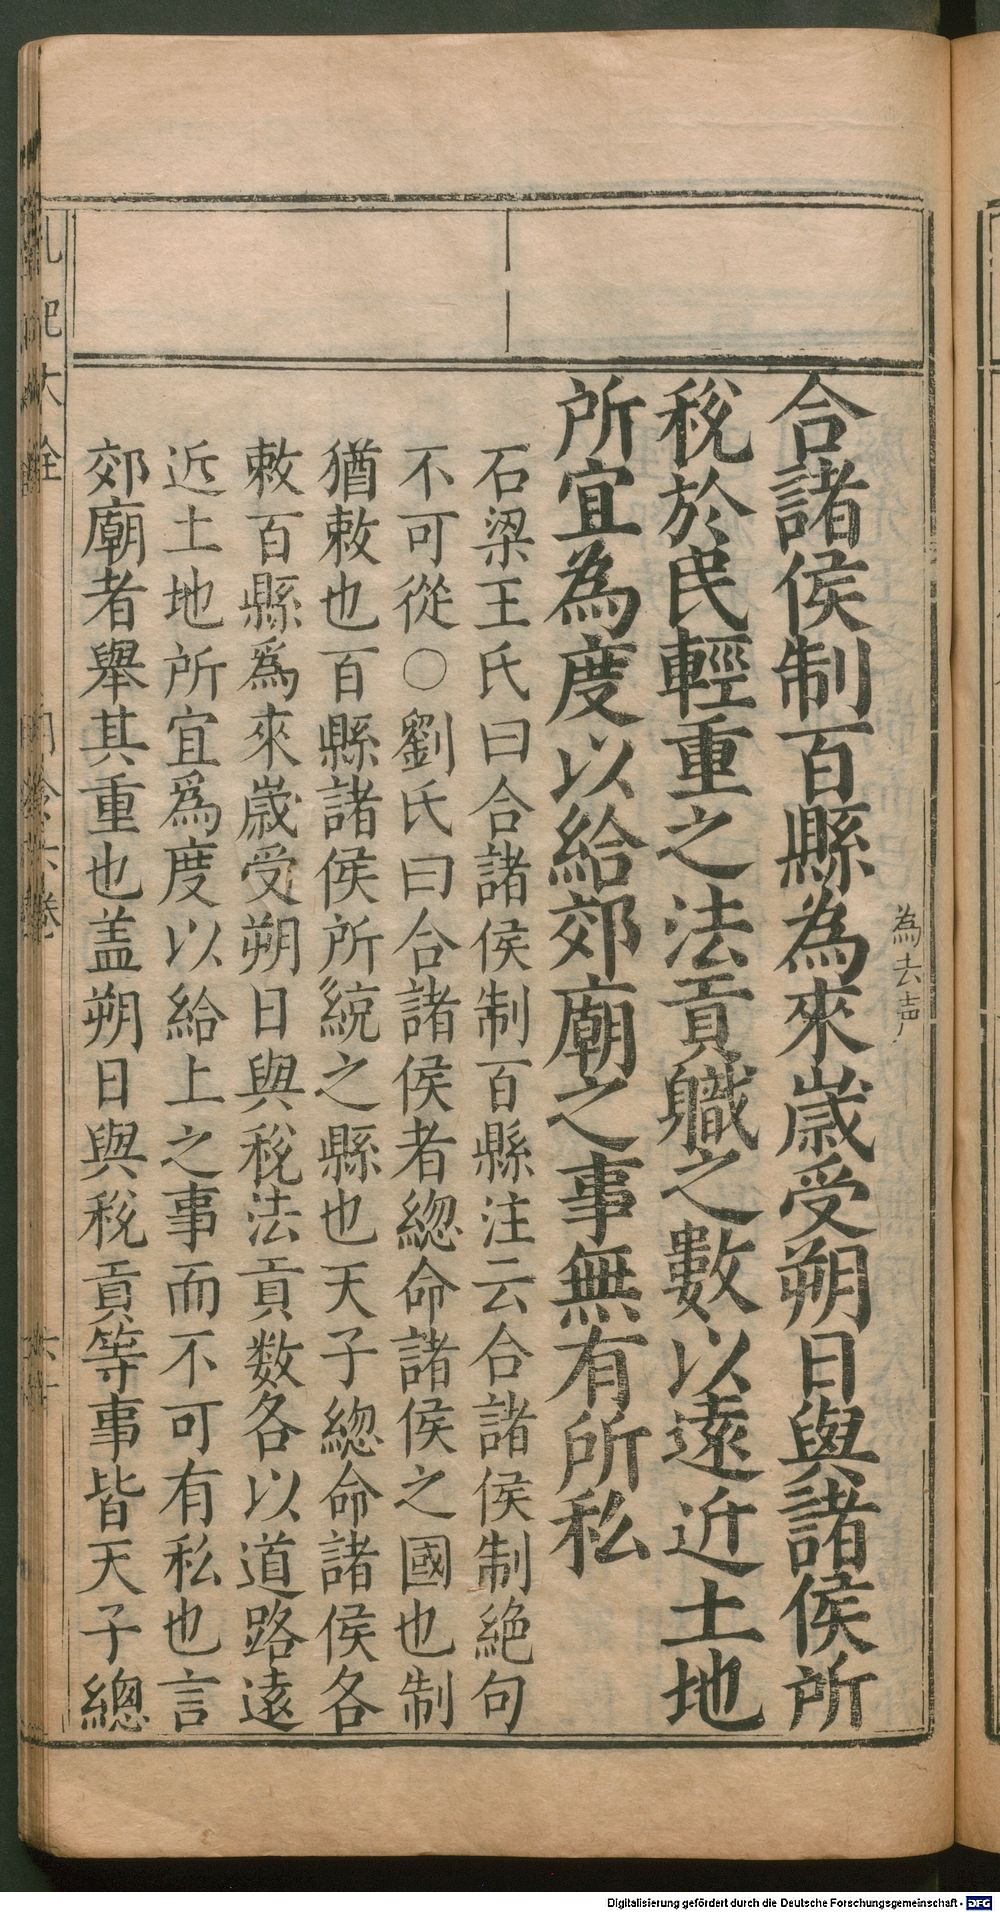 為去声
合諸侯制百縣為來歲受朔日與諸侯所
稅於民輕重之法貢職之數以遠近土地
所宜為度以給郊廟之事無有所私
石梁王氏曰合諸侯制百縣注云合諸侯制絶句
不可從○劉氏曰合諸侯者緫命諸侯之國也制
猶敕也百縣諸侯所統之縣也天子緫命諸侯各
敕百縣爲來歲受朔日與稅法貢数各以道路遠
近土地所宜爲度以給上之事而不可有私也言
郊廟者舉其重也盖朔日與稅貢等事皆天子總
Digitalisierung gefördert durch die Deutsche Forschungsgemeinschaft - DFG